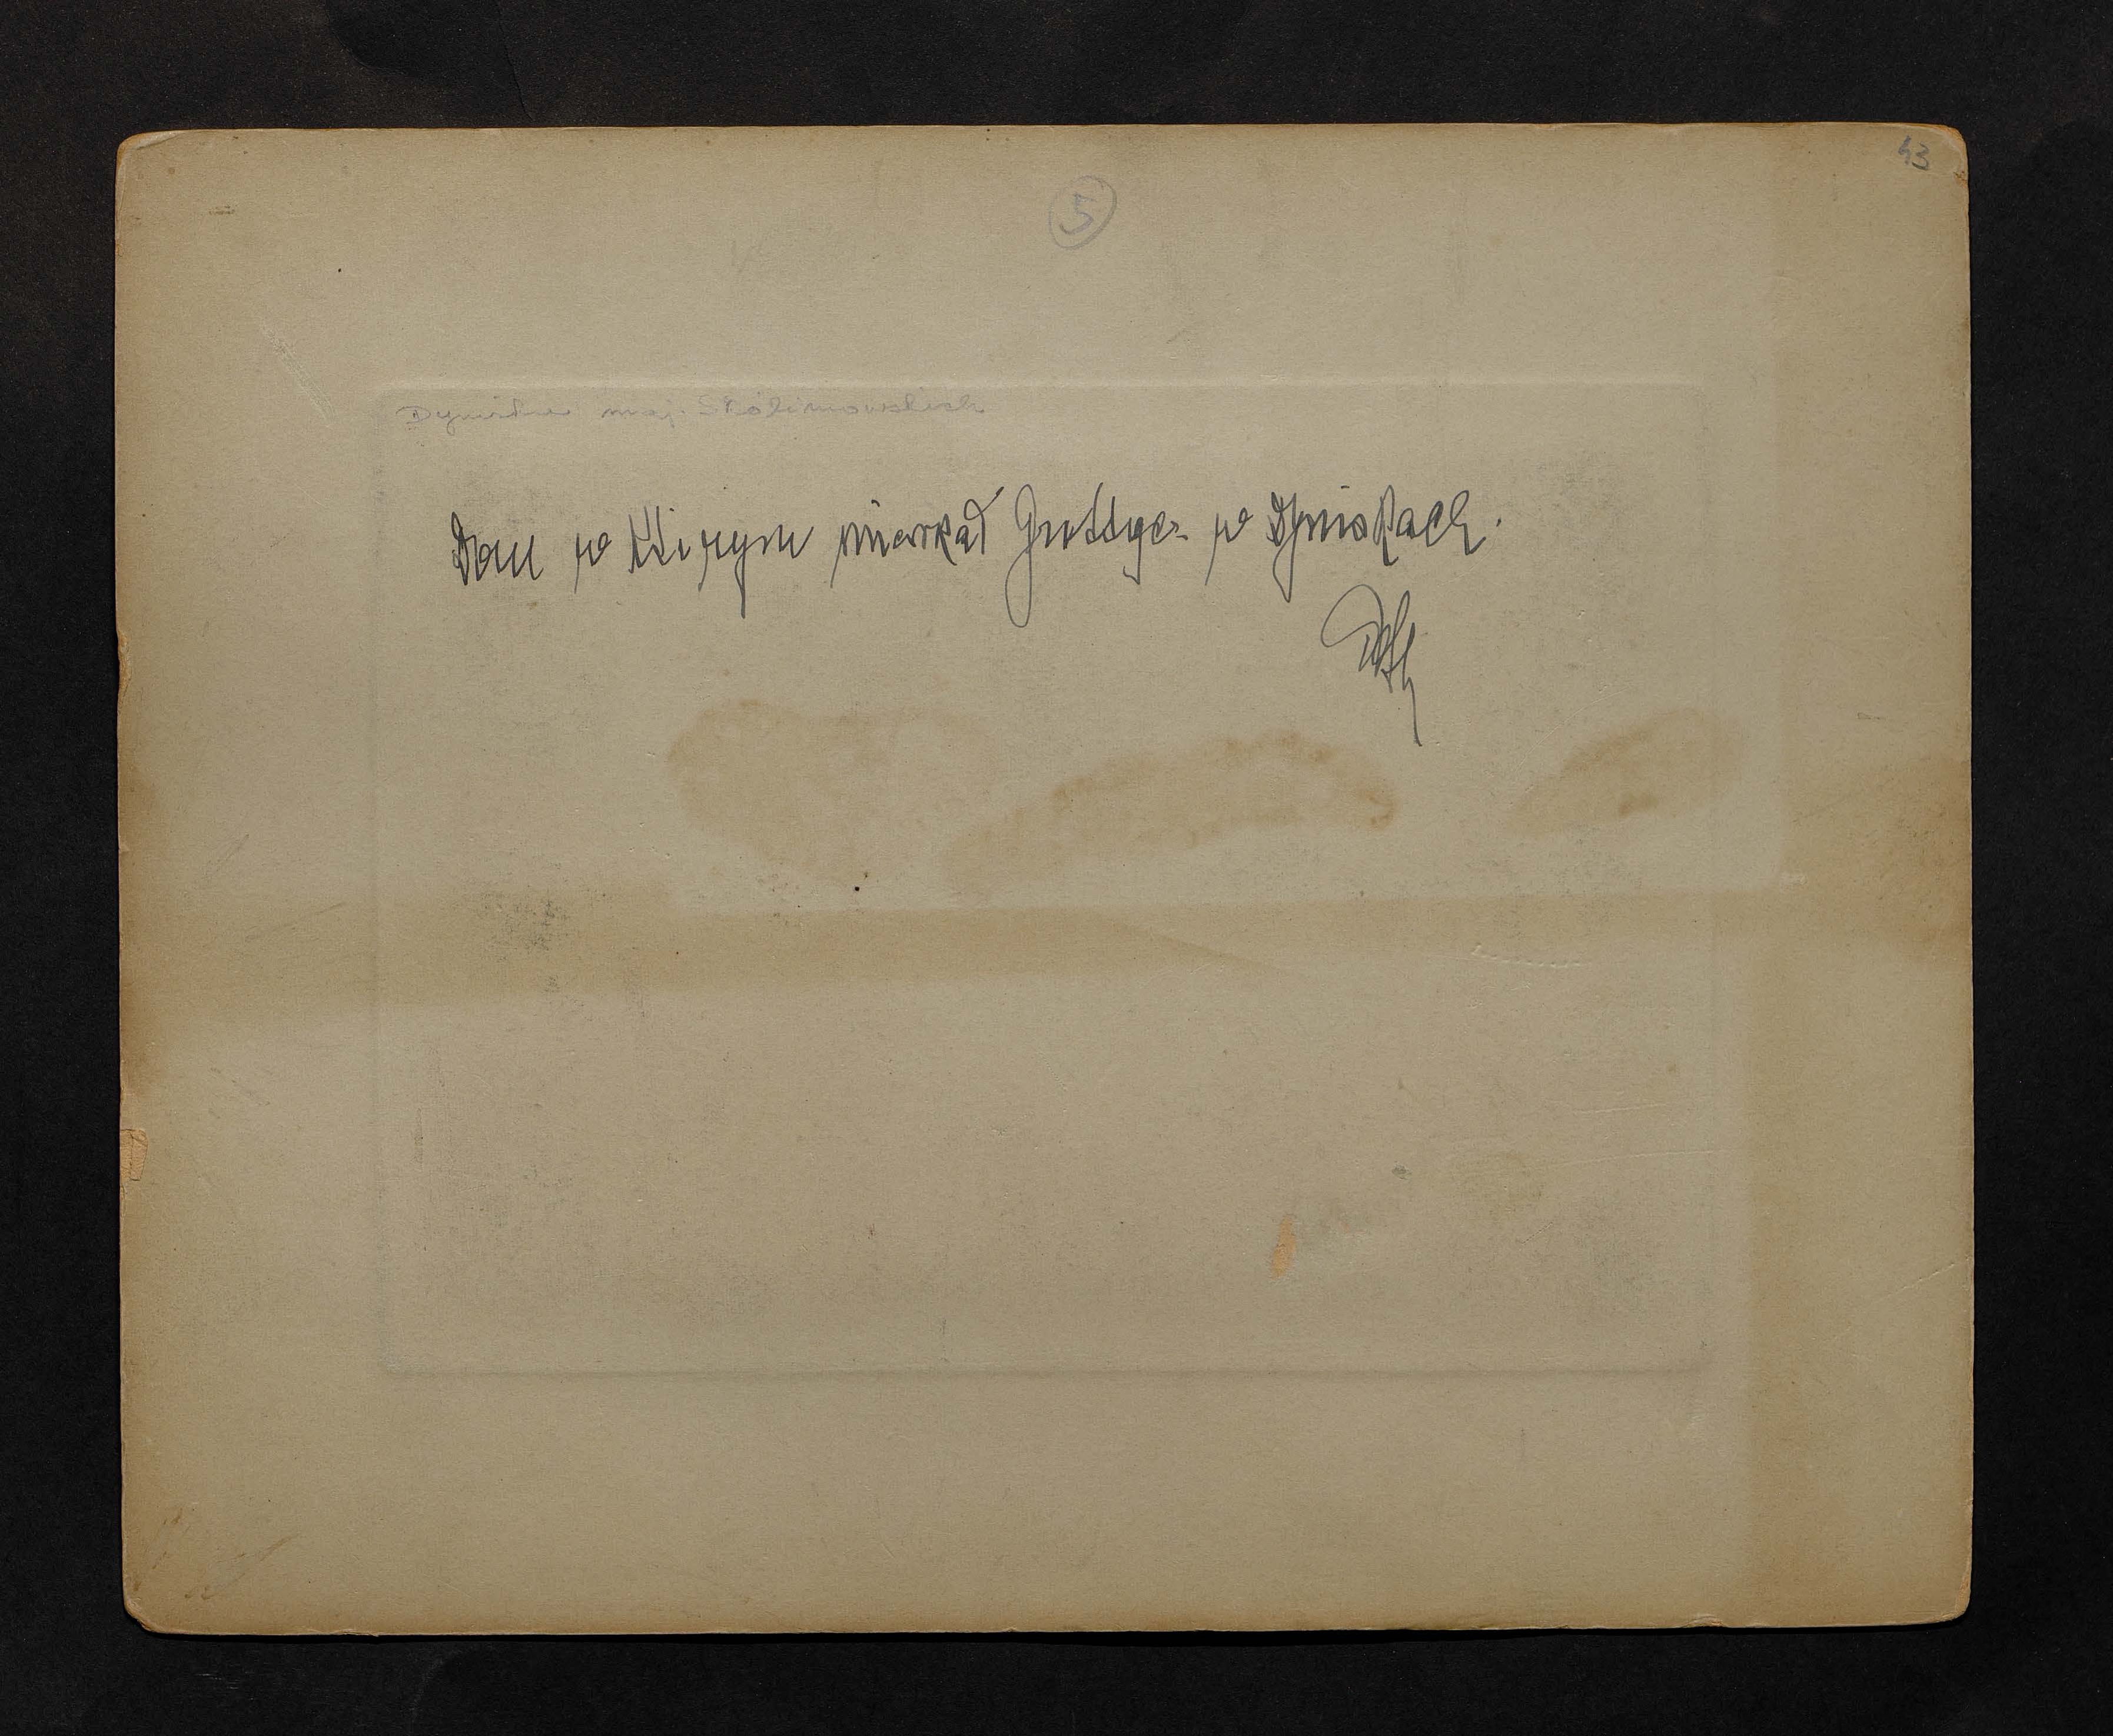 43
5
maj. Skolimowskich
Dom w którym mieszkał Grottger w Dyniskach.